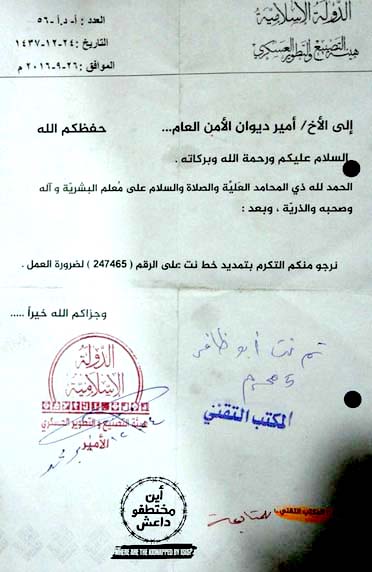 الدولة الإسلامية
هيئة التصنيع والتطوير العسكري
العدد : أ- د.أ -٥٦
التاريخ : ٢٤-١٢-١٤٣٧
الموافق : ٢٦-٩-٢٠١٦ م
إلى الأخ/ أمير ديوان الأمن العام... حفظكم الله
السلام عليكم ورحمة الله وبركاته .
الحمد لله ذي المحامد العَليّة والصلاة والسلام على مُعلم البشريّة و آله
وصحبه والذريّة ، وبعد :
نرجو منكم التكرم بتمديد خط نت على الرقم ( 247465 ) لضرورة العمل .
وجزاكم الله خيراً .....
تم نت أبو ظافر
5 محرم
المكتب التقني
الدولة
الإسلامية
هيئة التصنيع و التطوير العسكري
الأمير
المكتب التقني
للمتابعة
أين
مختطفو
داعش
WHERE ARE THE KIDNAPPED BY ISIS?